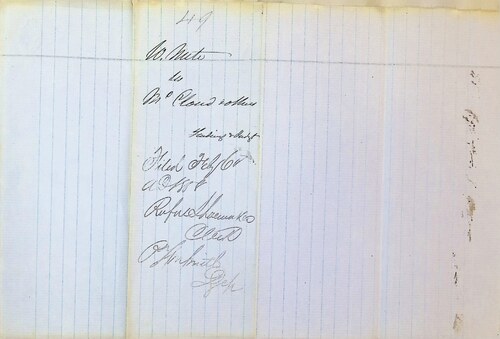 49
W. Nute
vs
McCloud & others
Finding & Judgt
Filed Feby 6th
AD 1858
Rufus Shoemaker
Clerk
Smith
Dpty